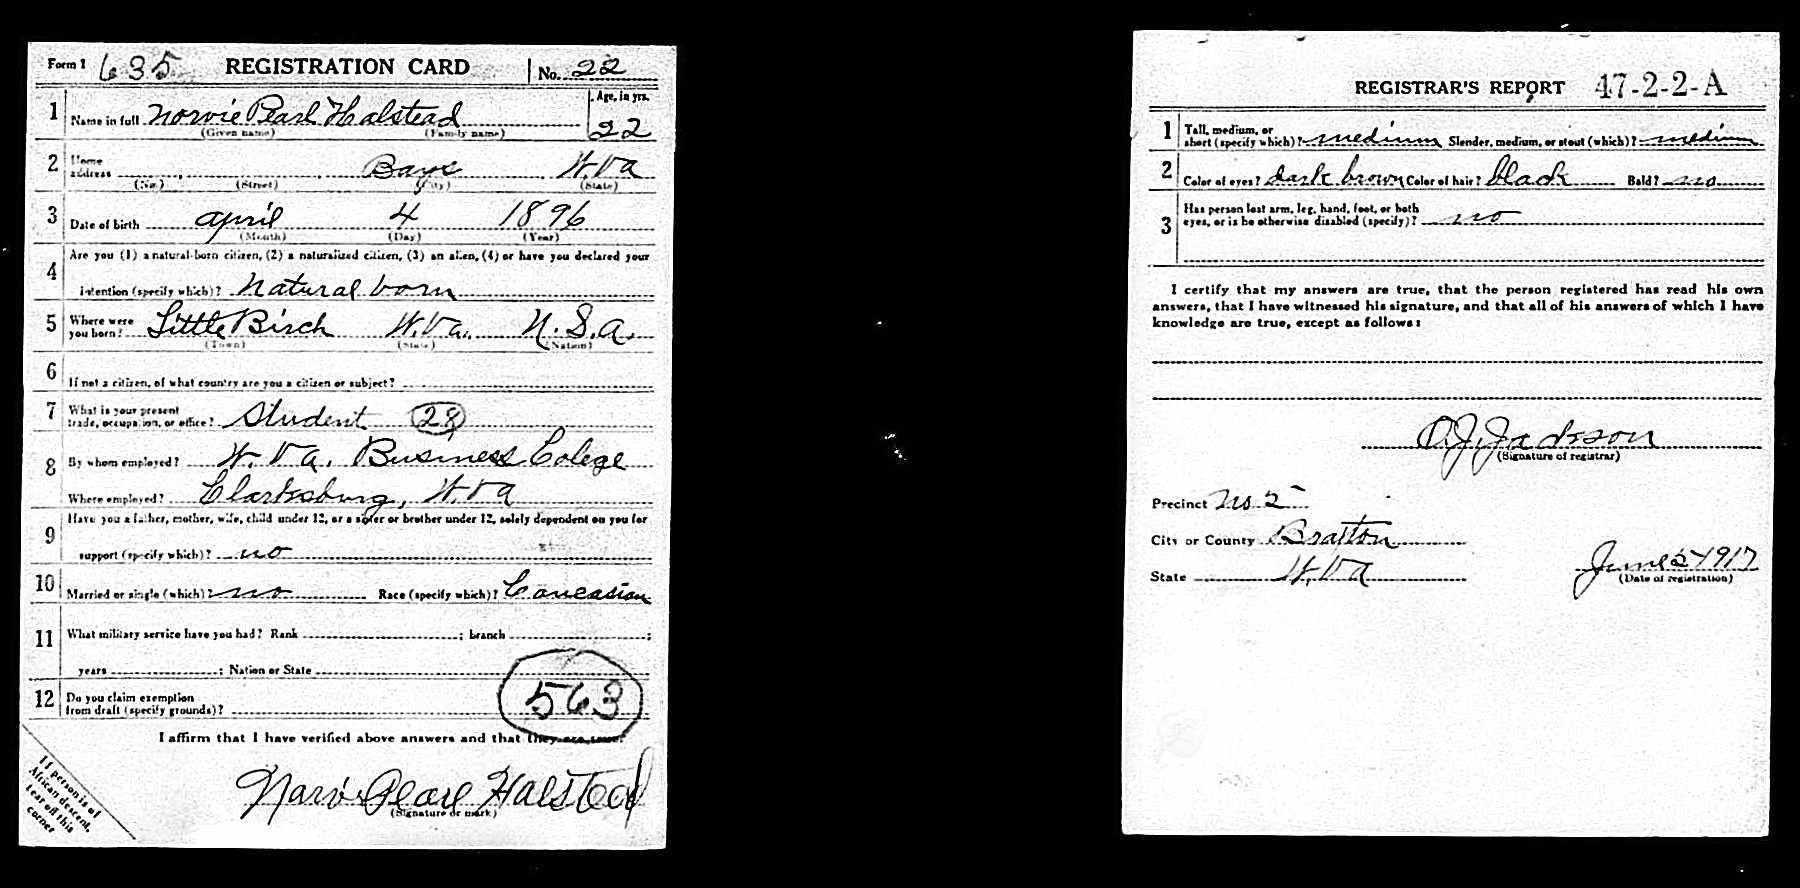 Form 1 635 REGISTRATION CARD No. 22
1 Name in full Norvie Pearl Halstead Age, in yrs. 22
(Given name) (Family name)
2 Home address Bays W. Va
(No.) (Street) (City) (State)
3 Date of birth April 4 1896
(Month) (Day) (Year)
4 Are you (1) a natural-born citizen, (2) a naturalized citizen, (3) an alien, (4) or have you declared your
intention (specify which)? Natural born
5 Where were you born? Little Birch W. Va. U. S. A.
(Town) (State) (Nation)
6 If not a citizen, of what country are you a citizen or subject?
7 What is your present trade, occupation, or office? Student 28
8 By whom employed? W. Va. Business Colege
Where employed? Clarksburg, W. Va
9 Have you a father, mother, wife, child under 12, or a sister or brother under 12, solely dependent on you for
support (specify which)? no
10 Married or single (which)? no Race (specify which)? Caucasian
11 What military service have you had? Rank ; branch ;
years ; Nation or State
12 Do you claim exemption
from draft (specify grounds)?
563
I affirm that I have verified above answers and that they are true.
Narvie Pearl Halstead
(Signature or mark)
If person is of
African descent,
tear off this
corner
REGISTRAR'S REPORT 47-2-2-A
1 Tall, medium, or
short (specify which)? medium Slender, medium, or stout (which)? medium
2 Color of eyes? dark brown Color of hair? black Bald? no
3 Has person lost arm, leg, hand, foot, or both
eyes, or is he otherwise disabled (specify)? no
I certify that my answers are true, that the person registered has read his own
answers, that I have witnessed his signature, and that all of his answers of which I have
knowledge are true, except as follows:
O. J. Jackson
(Signature of registrar)
Precinct No 5
City or County Braxton
State W. Va
June 5 1917
(Date of registration)